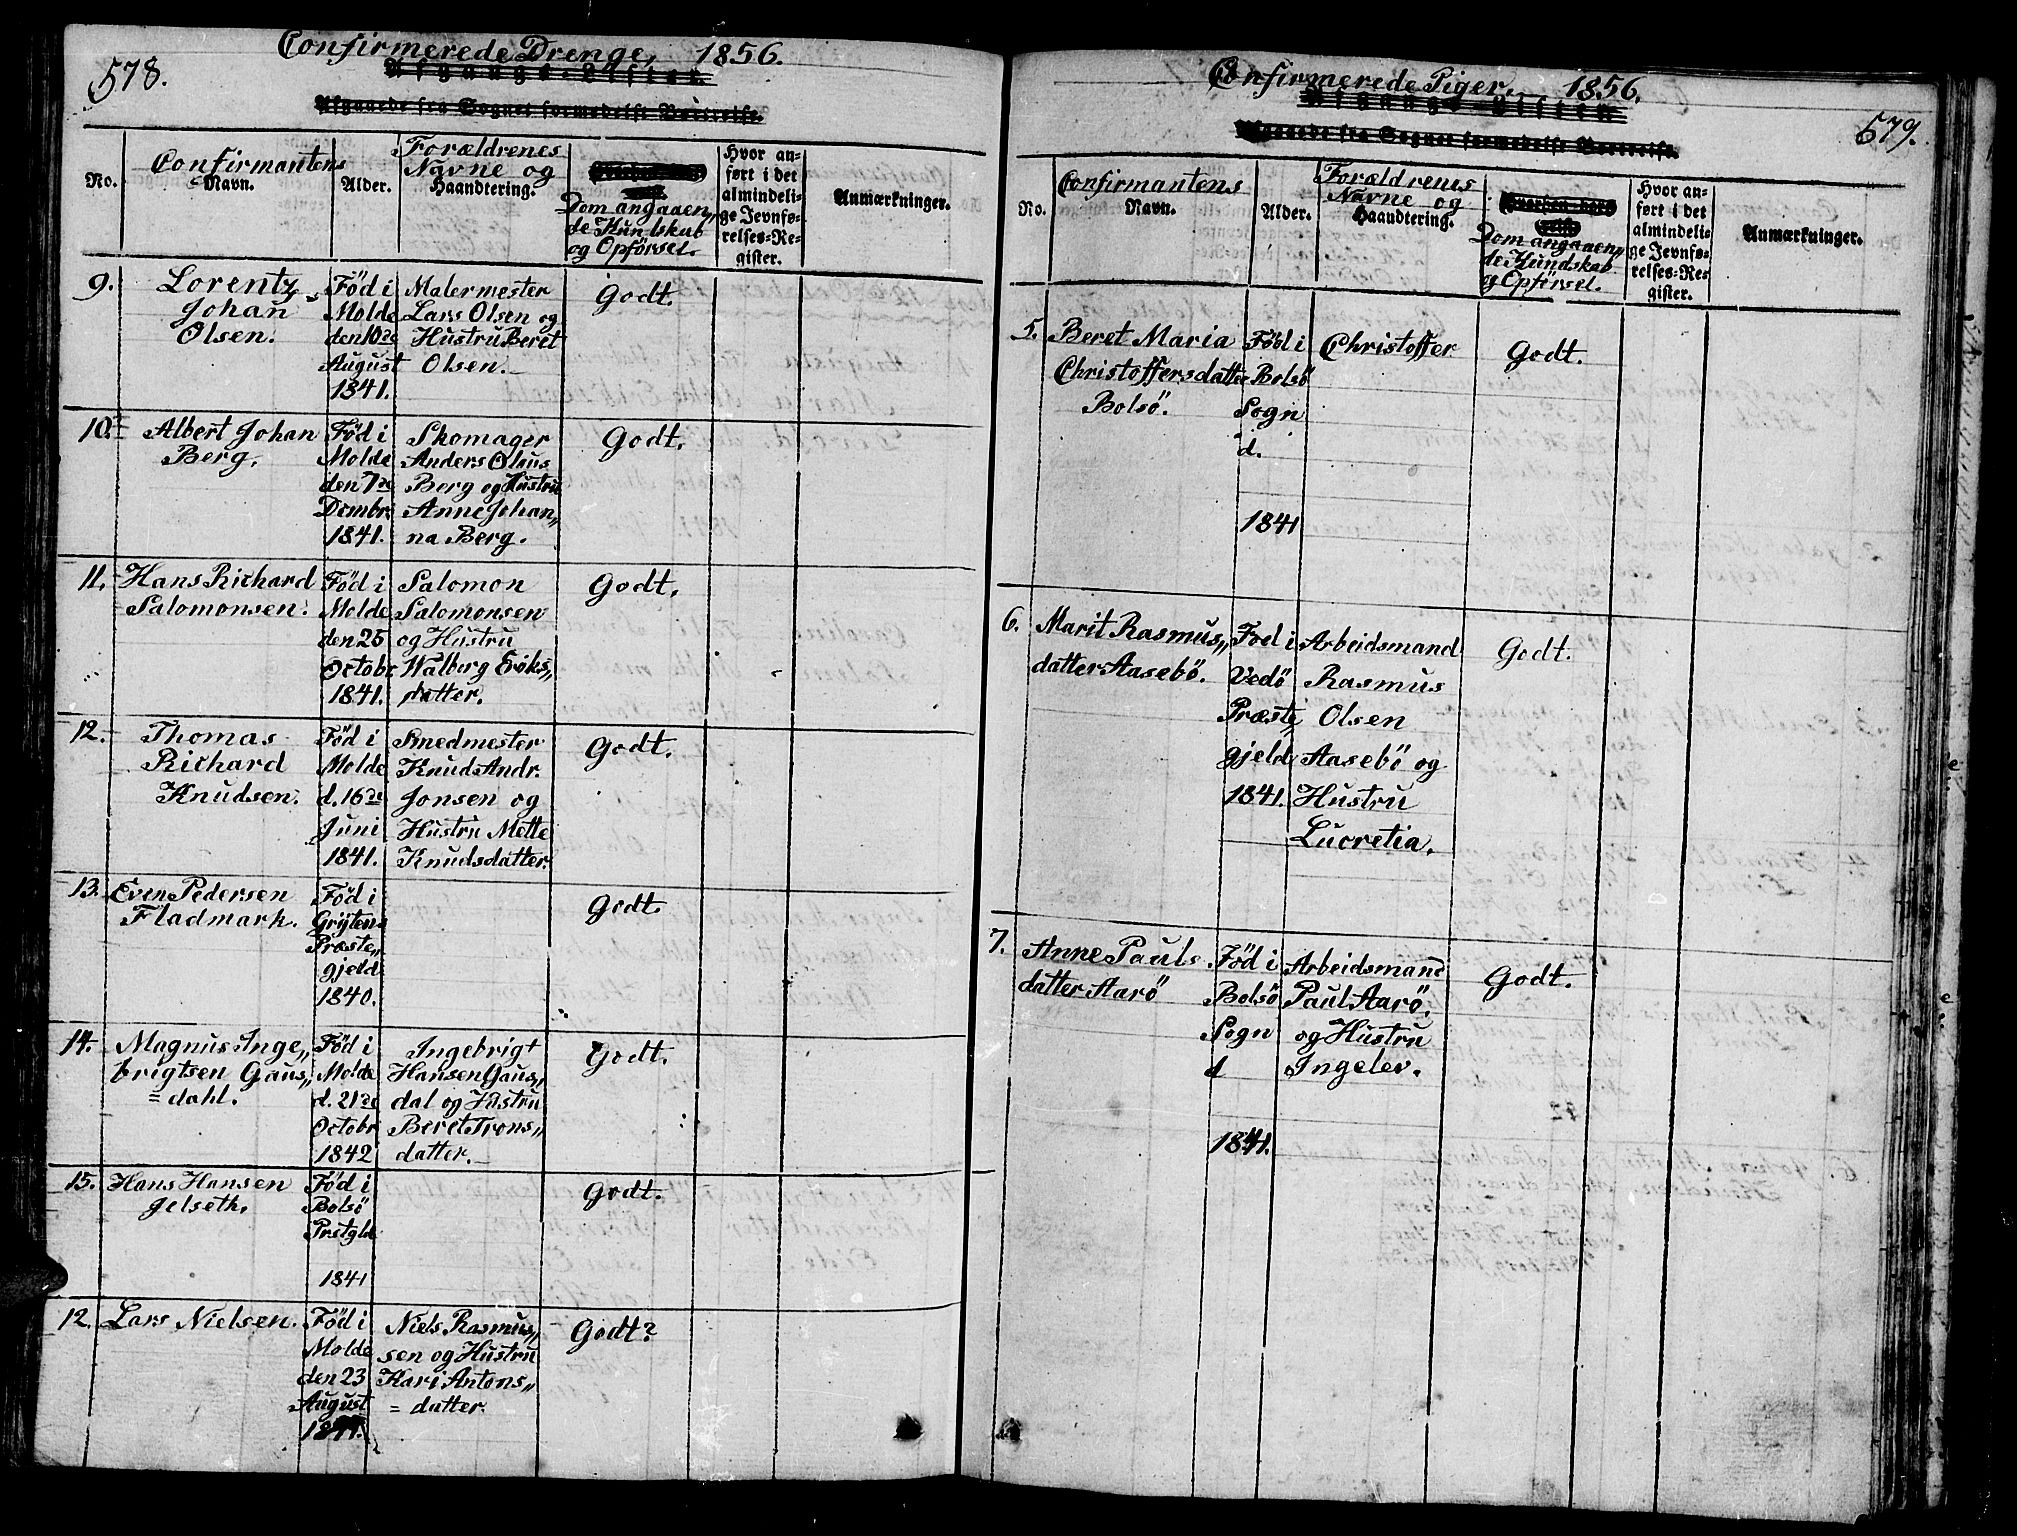 578.
Confirmerede Drenge, 1856.
Afgangs-Listen
Afgaaede fra Sognet formedelst Bortreise.
No.
Confirmantens
Navn.
Alder.
Forældrenes
Navne og
Haandtering.
Dom angaaen„
de Kundskab
og Opførsel.
Hvor an-
ført i det
almindeli-
ge Jevnfø-
relses-Re-
gister.
Anmærkninger.
9.
Lorentz
Johan
Olsen.
Född i
Molde
den 10de
August
1841.
Malermester
Lars Olsen og
Hustru Beret
Olsen.
Godt.
10.
Albert Johan
Berg.
Föd i
Molde
den 7de
Dcmbr.
1841.
Skomager
Anders Olaus
Berg og Hustru
Anne Johan„
na Berg.
Godt.
11.
Hans Richard
Salomonsen.
Föd i
Molde
den 25
Octobr
1841.
Salomon
Salomonsen
og Hustru
Walberg Eriks„
datter.
Godt.
12.
Thomas
Richard
Knudsen.
Föd i
Molde
d. 16de
Juni
1841.
Smedmester
Knud Andr.
Jonsen og
Hustru Mette
Knudsdatter.
Godt.
13.
Even Pedersen
Fladmark.
Föd i
Grytens
Præste„
gjeld
1840.
Godt.
14.
Magnus Inge„
brigtsen Gaus„
=dahl.
Föd i
Molde
d. 21de
Octobr
1842
Ingebrigt
Hansen Gaus„
dal og Hustru
Beret Trons„
datter.
Godt.
15.
Hans Hansen
Jelseth.
Föd i
Bolsö
Prstgld
1841
Godt.
12.
Lars Nielsen.
Föd i
Molde
den 23
August
1841.
Niels Rasmus„
sen og Hustru
Kari Antons„
=datter.
Godt?
Confirmerede Piger, 1856.
Afgangs-Listen
Afgaaede fra Sognet formedelst Bortreise.
579.
No.
Confirmantens
Navn.
Alder.
Forældrenes
Navne og
Haandtering.
Dom angaaen„
de Kundskab
og Opførsel.
Hvor an-
ført i det
almindeli-
ge Jevnfø-
relses-Re-
gister.
Anmærkninger.
5.
Beret Maria
Christoffersdatter
Bolsö.
Föd i
Bolsö
Sogn
d.
1841
Christoffer
Godt.
6.
Marit Rasmus„
datter Aasebö.
Fød i
Vedö
Præste„
gjeld
1841.
Arbeidsmand
Rasmus
Olsen
Aasebö og
Hustru
Lucretia.
Godt.
7.
Anne Pauls
datter Aarö
Föd i
Bolsö
Sogn
d
1841.
Arbeidsmand
Paul Aarö,
og Hustru
Ingelev.
Godt.